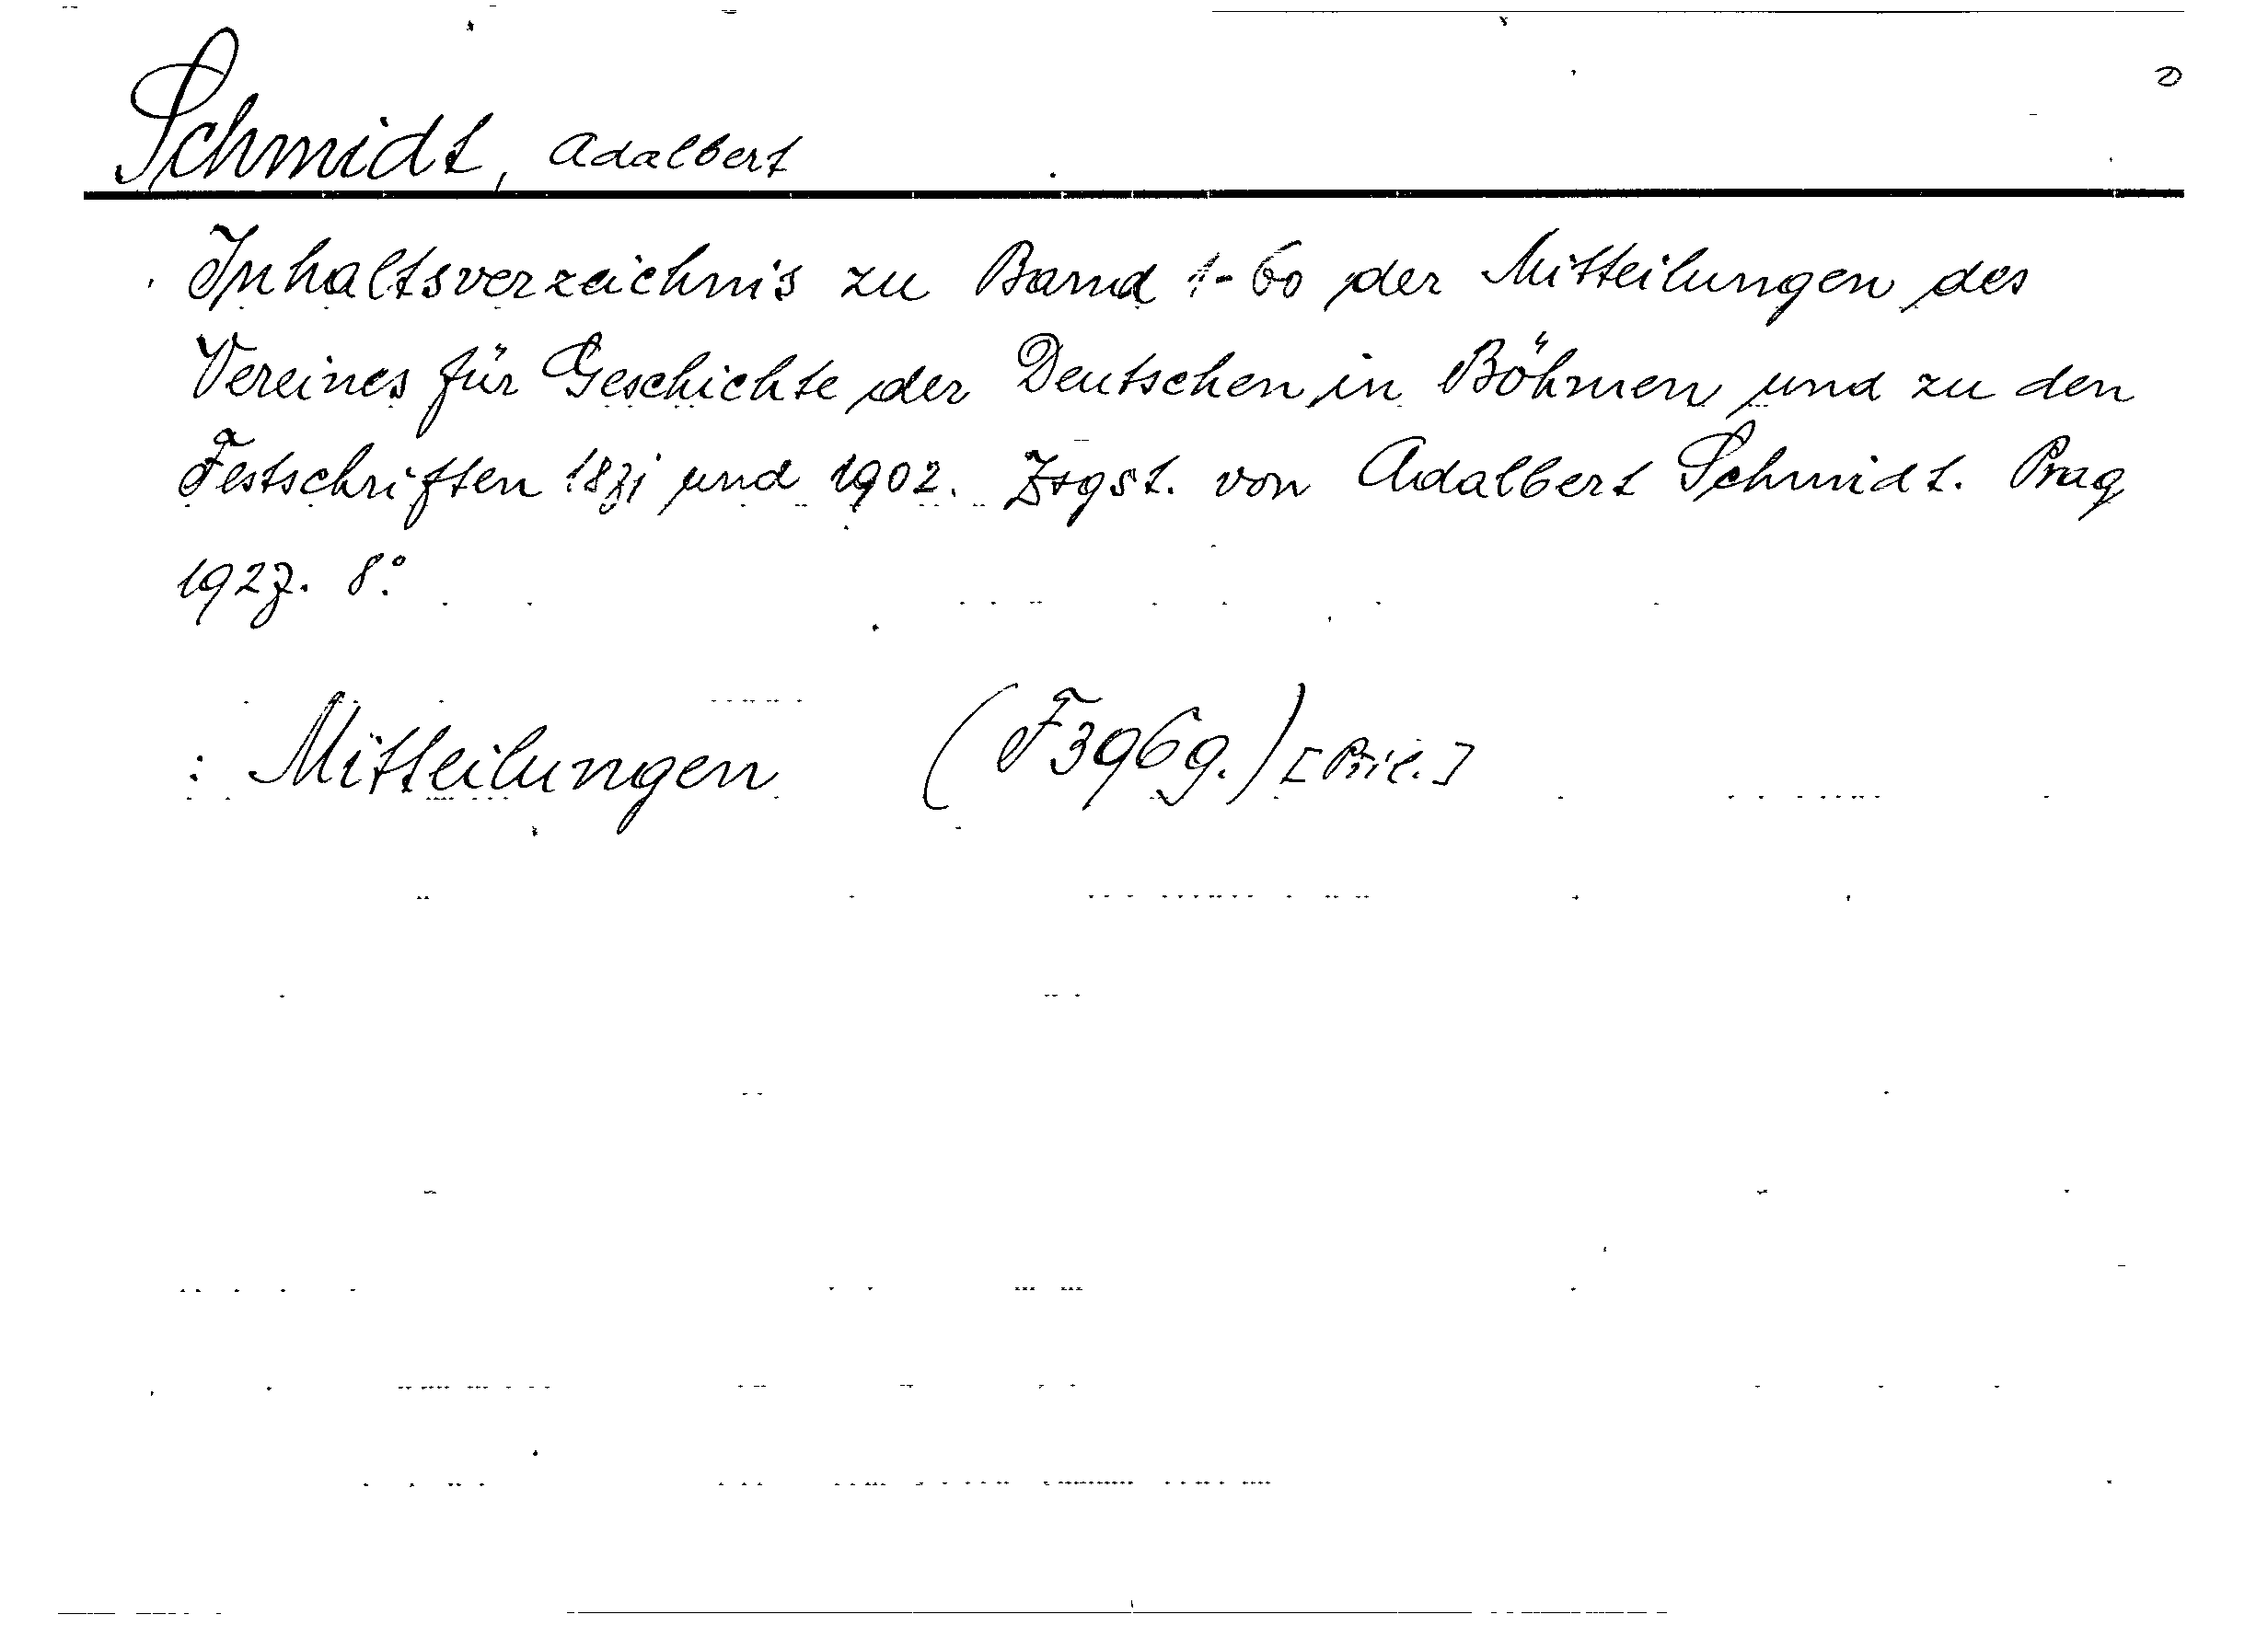 Schmidt, Adalbert
Inhaltsverzeichnis zu Band 1-60 der Mitteilungen des
Vereines für Geschichte der Deutschen in Böhmen und zu den
Festschriften 1871 und 1902. Zsgst. von Adalbert Schmidt. Prag
1927. 8°.
: Mitteilungen (F 3969.) [Příl.]